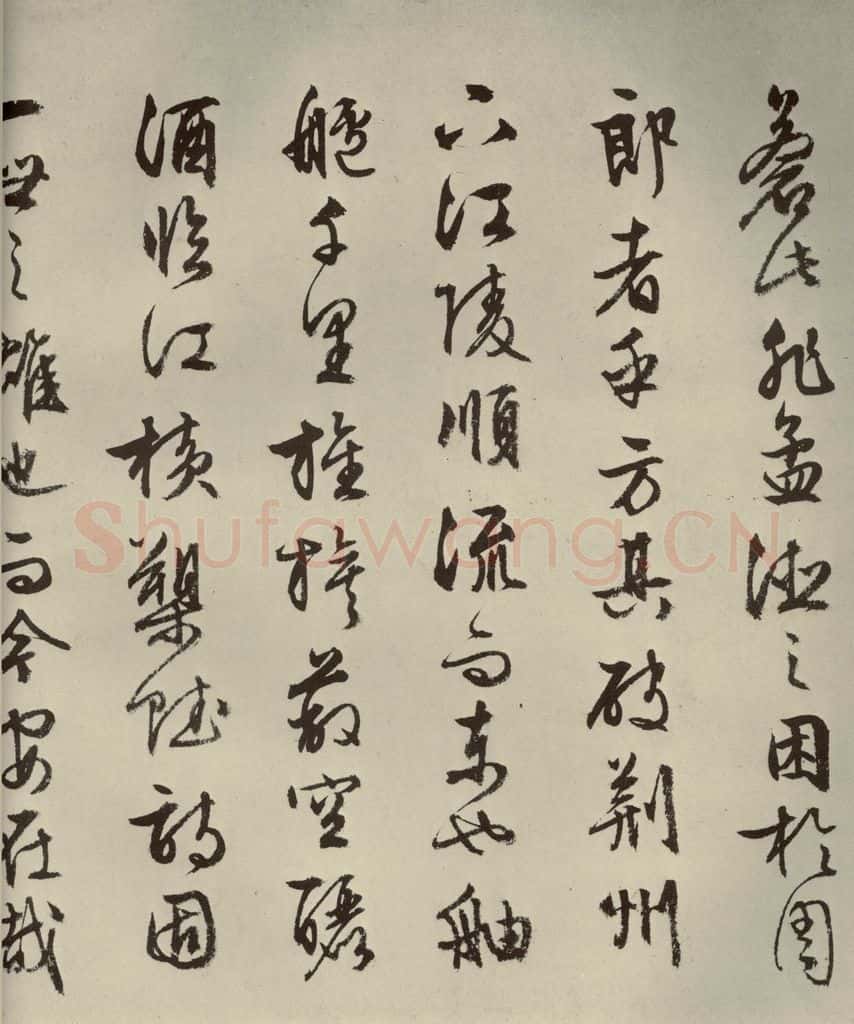 蒼此非孟德之困於周
郎者乎方其破荆州
下江陵順流而東也舳
艫千里旌旗蔽空釃
酒臨江横槊賦詩固
一世之雄也而今安在哉
Shufawang.CN